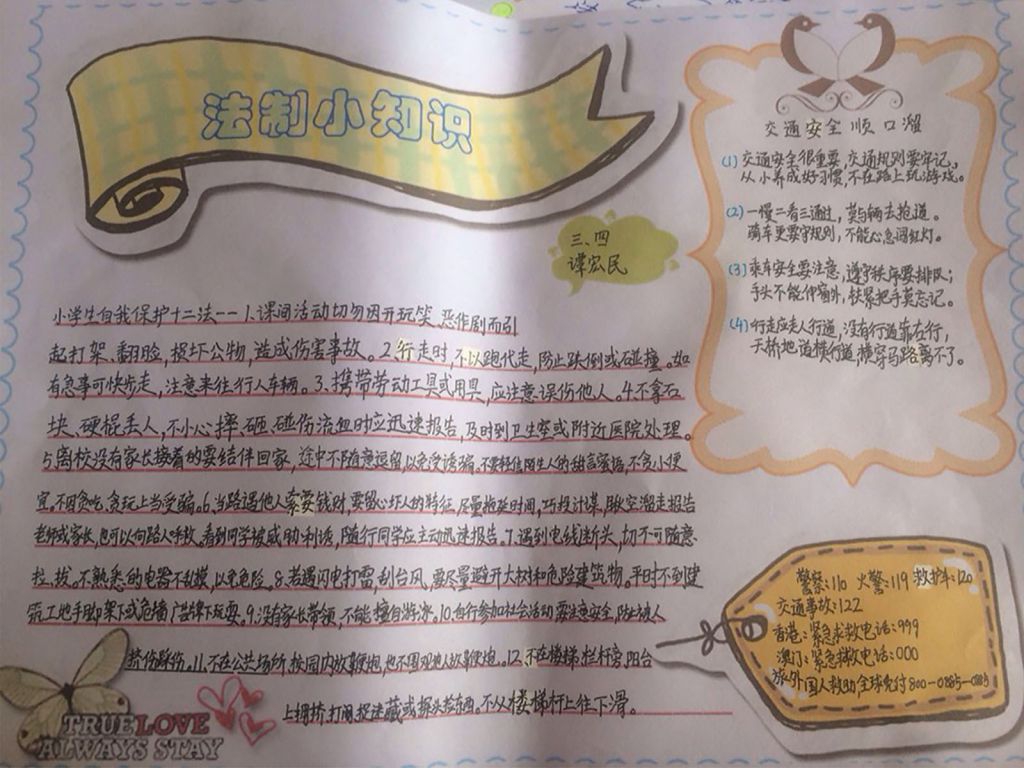 法制小知识
三、四
谭宏民
小学生自我保护十二法——1.课间活动切勿因开玩笑、恶作剧而引
起打架、翻脸,损坏公物,造成伤害事故。2.行走时,不以跑代走,防止跌倒或碰撞。如
有急事可快步走,注意来往行人车辆。3.携带劳动工具或用具,应注意误伤他人。4.不拿石
块、硬棍丢人,不小心摔、砸、碰伤流血时应迅速报告,及时到卫生室或附近医院处理。
5.离校没有家长接着的要结伴回家,途中不随意逗留,以免受诱骗。不要轻信陌生人的甜言蜜语,不贪小便
宜。不因贪吃、贪玩上当受骗。6.当路遇他人索要钱财,要留心坏人的特征,尽量拖延时间,巧投计谋,瞅空溜走报告
老师或家长,也可以向路人呼救。看到同学被威胁利诱,随行同学应主动迅速报告。7.遇到电线断头,切不可随意
拉、拔。不熟悉的电器不乱摸,以免危险。8.若遇闪电打雷,刮台风,要尽量避开大树和危险建筑物。平时不到建
筑工地手脚架下或危墙广告牌下玩耍。9.没有家长带领,不能擅自游泳。10.自行参加社会活动要注意安全,防止被人
挤伤踩伤。11.不在公共场所、校园内放鞭炮,也不围观他人放鞭炮。12.不在楼梯、栏杆旁、阳台
上拥挤、打闹、捉迷藏或探头丢东西。不从楼梯杆上往下滑。
交通安全顺口溜
(1)交通安全很重要,交通规则要牢记,
从小养成好习惯,不在路上玩游戏。
(2)一慢二看三通过,莫与辆去抢道。
骑车更要守规则,不能心急闯红灯。
(3)乘车安全要注意,遵守秩序要排队;
手头不能伸窗外,扶紧把手莫忘记。
(4)行走应走人行道,没有行道靠右行,
天桥地道横行道,横穿马路离不了。
警察:110 火警:119 救护车:120
交通事故:122
香港:紧急求救电话:999
澳门:紧急救电话:000
旅外国人救助全球免付800-0885-0885
TRUE LOVE
ALWAYS STAY